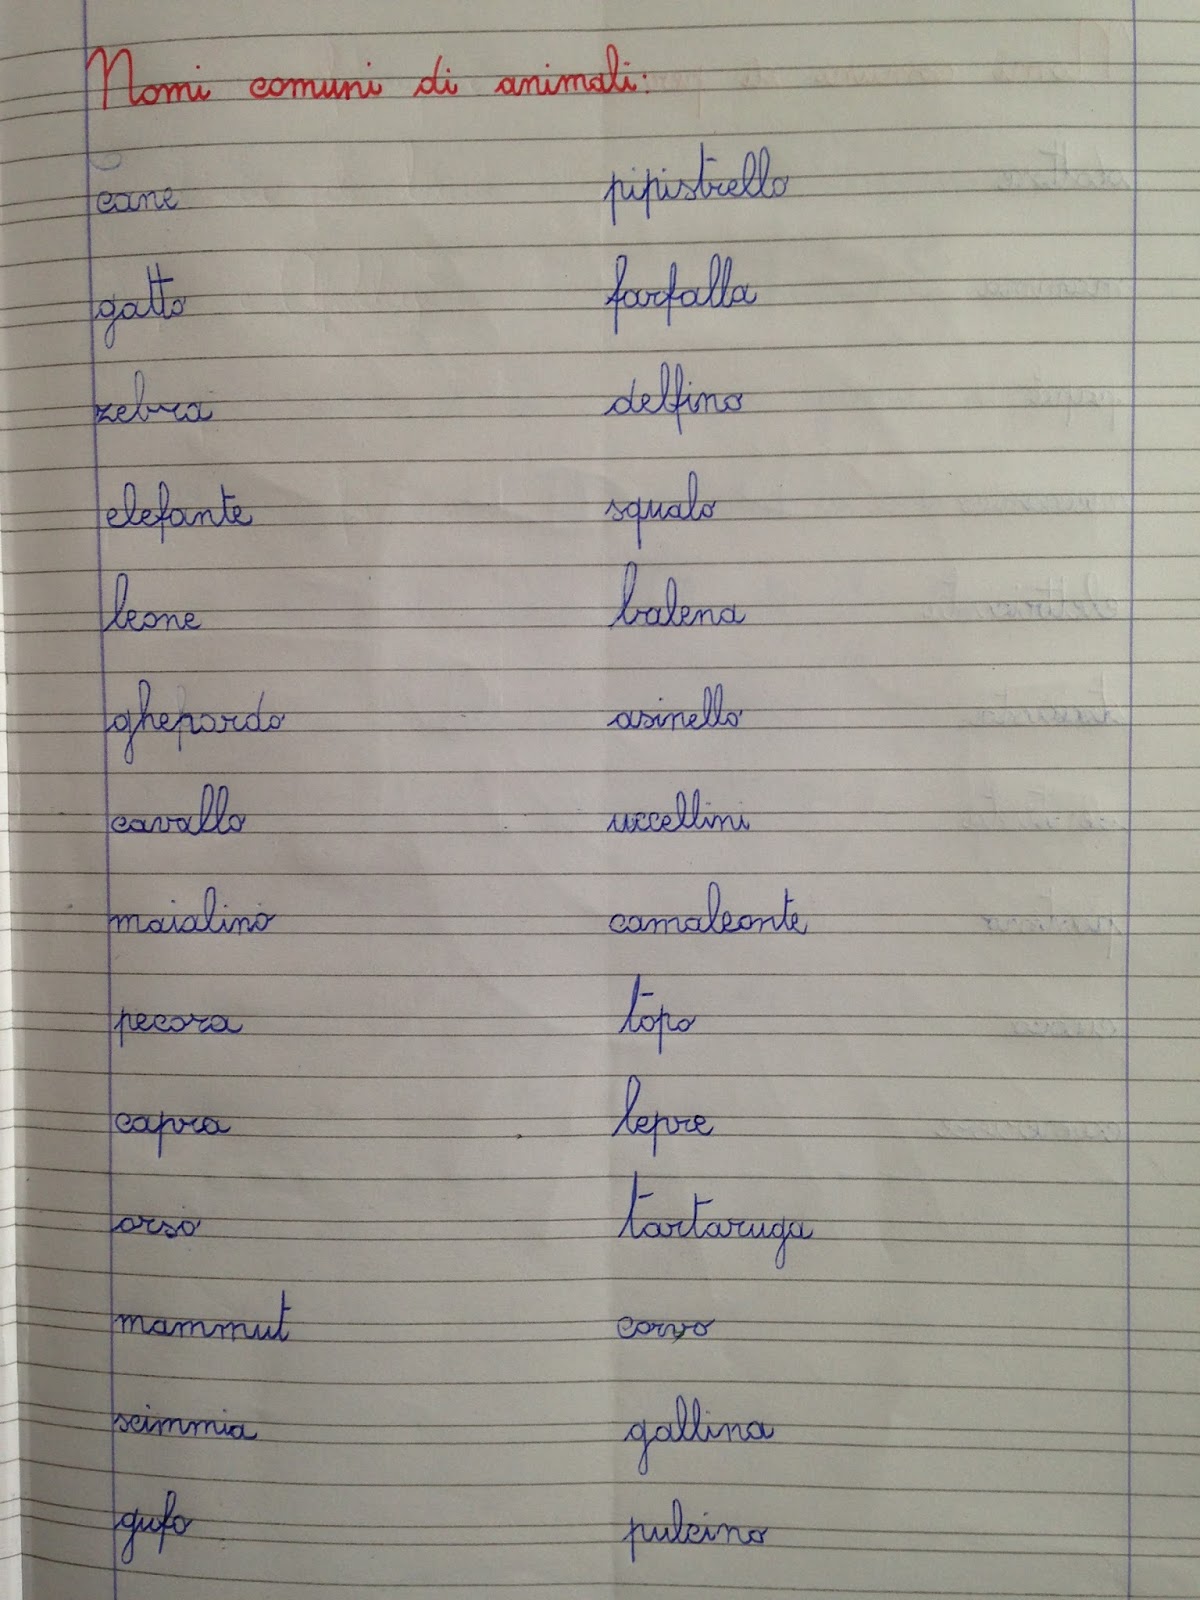 Nomi comuni di animali:
cane pipistrello
gatto farfalla
zebra delfino
elefante squalo
leone balena
ghepardo asinello
cavallo uccellini
maialino camaleonte
pecora topo
capra lepre
orso tartaruga
mammut corvo
scimmia gallina
gufo pulcino